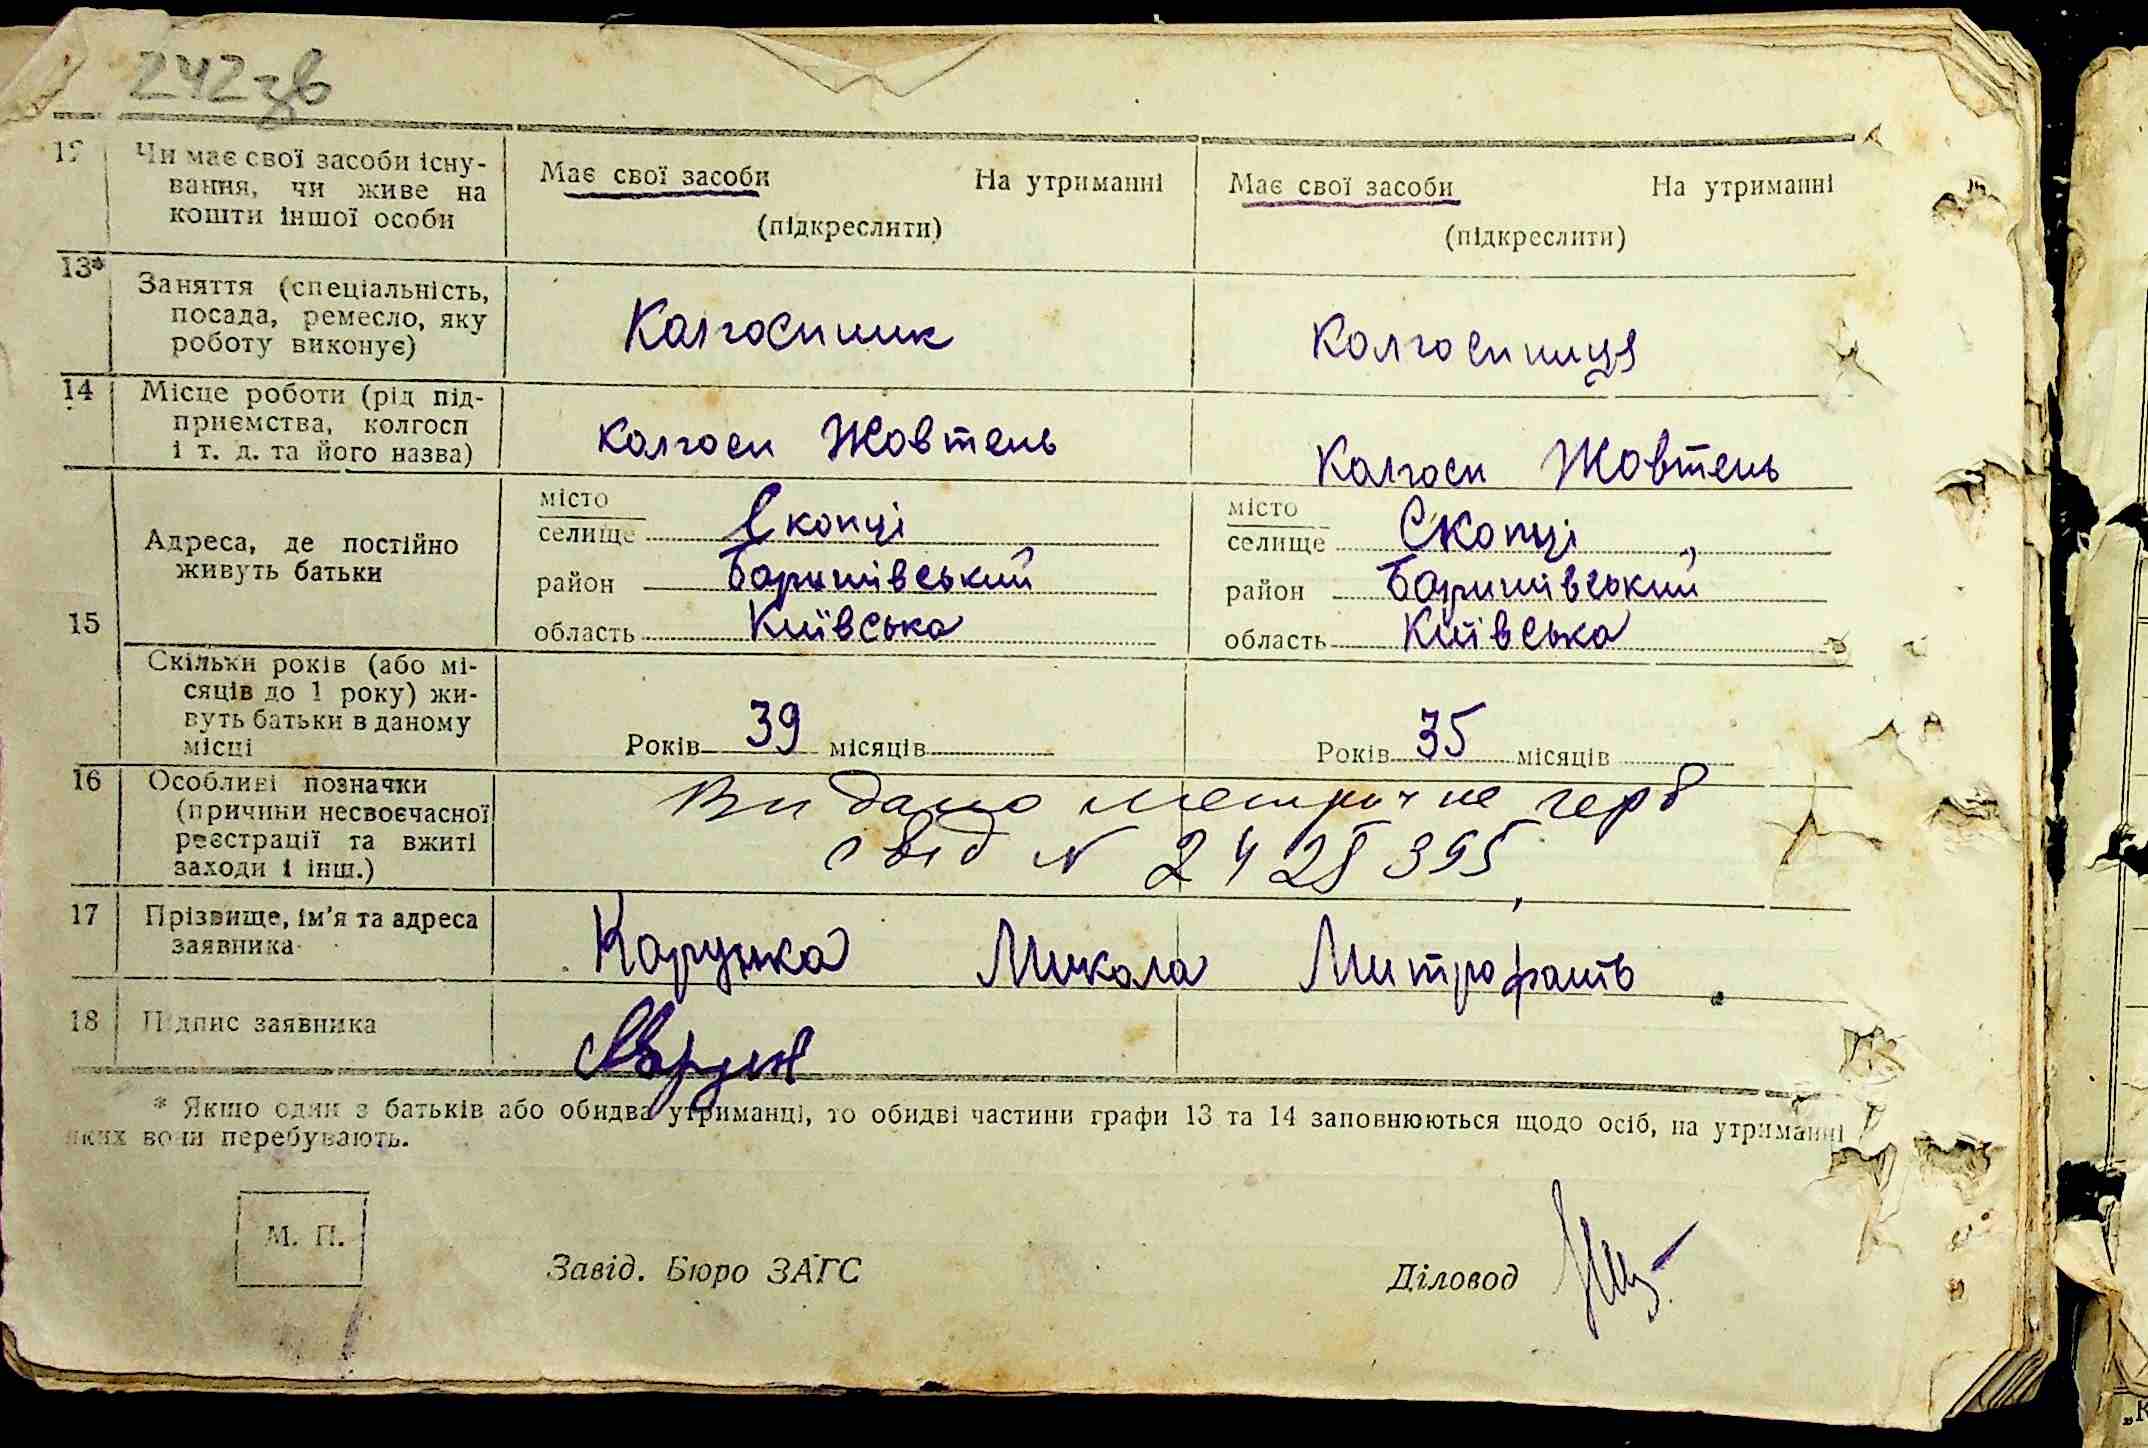 242зв
12 Чи має свої засоби існу- Має свої засоби На утриманні Має свої засоби На утриманні
вання, чи живе на
кошти іншої особи (підкреслити) (підкреслити)
13* Заняття (спеціальність,
посада, ремесло, яку Колгоспник Колгоспниця
роботу виконує)
14 Місце роботи (рід під-
приємства, колгосп колгосп Жовтень Колгосп Жовтень
і т. д. та його назва)
15 Адреса, де постійно
живуть батьки
місто місто
селище Скопці селище Скопці
район Баришівський район Баришівський
область Київська область Київська
Скільки років (або мі-
сяців до 1 року) жи-
вуть батьки в даному
місці Років 39 місяців Років 35 місяців
16 Особливі позначки Видано метричне герб
(причини несвоєчасної
реєстрації та вжиті свід N 2428395
заходи і інш.)
17 Прізвище, ім'я та адреса
заявника Микола Митрофанів
18 Підпис заявника
* Якщо один з батьків або обидва утриманці, то обидві частини графи 13 та 14 заповнюються щодо осіб, на утриманні
яких вони перебувають.
М. П.
Завід. Бюро ЗАГС Діловод
„К